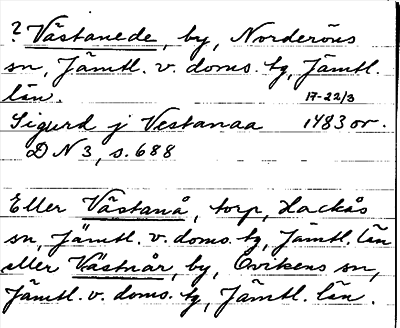 ? Västanede, by, Norderöns
sn, Jämtl. v. doms. tg, Jämtl.
län. 17-22/3
Sigurd j Vestanaa 1483 or.
DN 3, s. 688
Eller Västanå, torp, Hackås
sn, Jämtl. v. doms. tg, Jämtl. län
eller Västnår, by, Ovikens sn,
Jämtl. v. doms. tg, Jämtl. län.